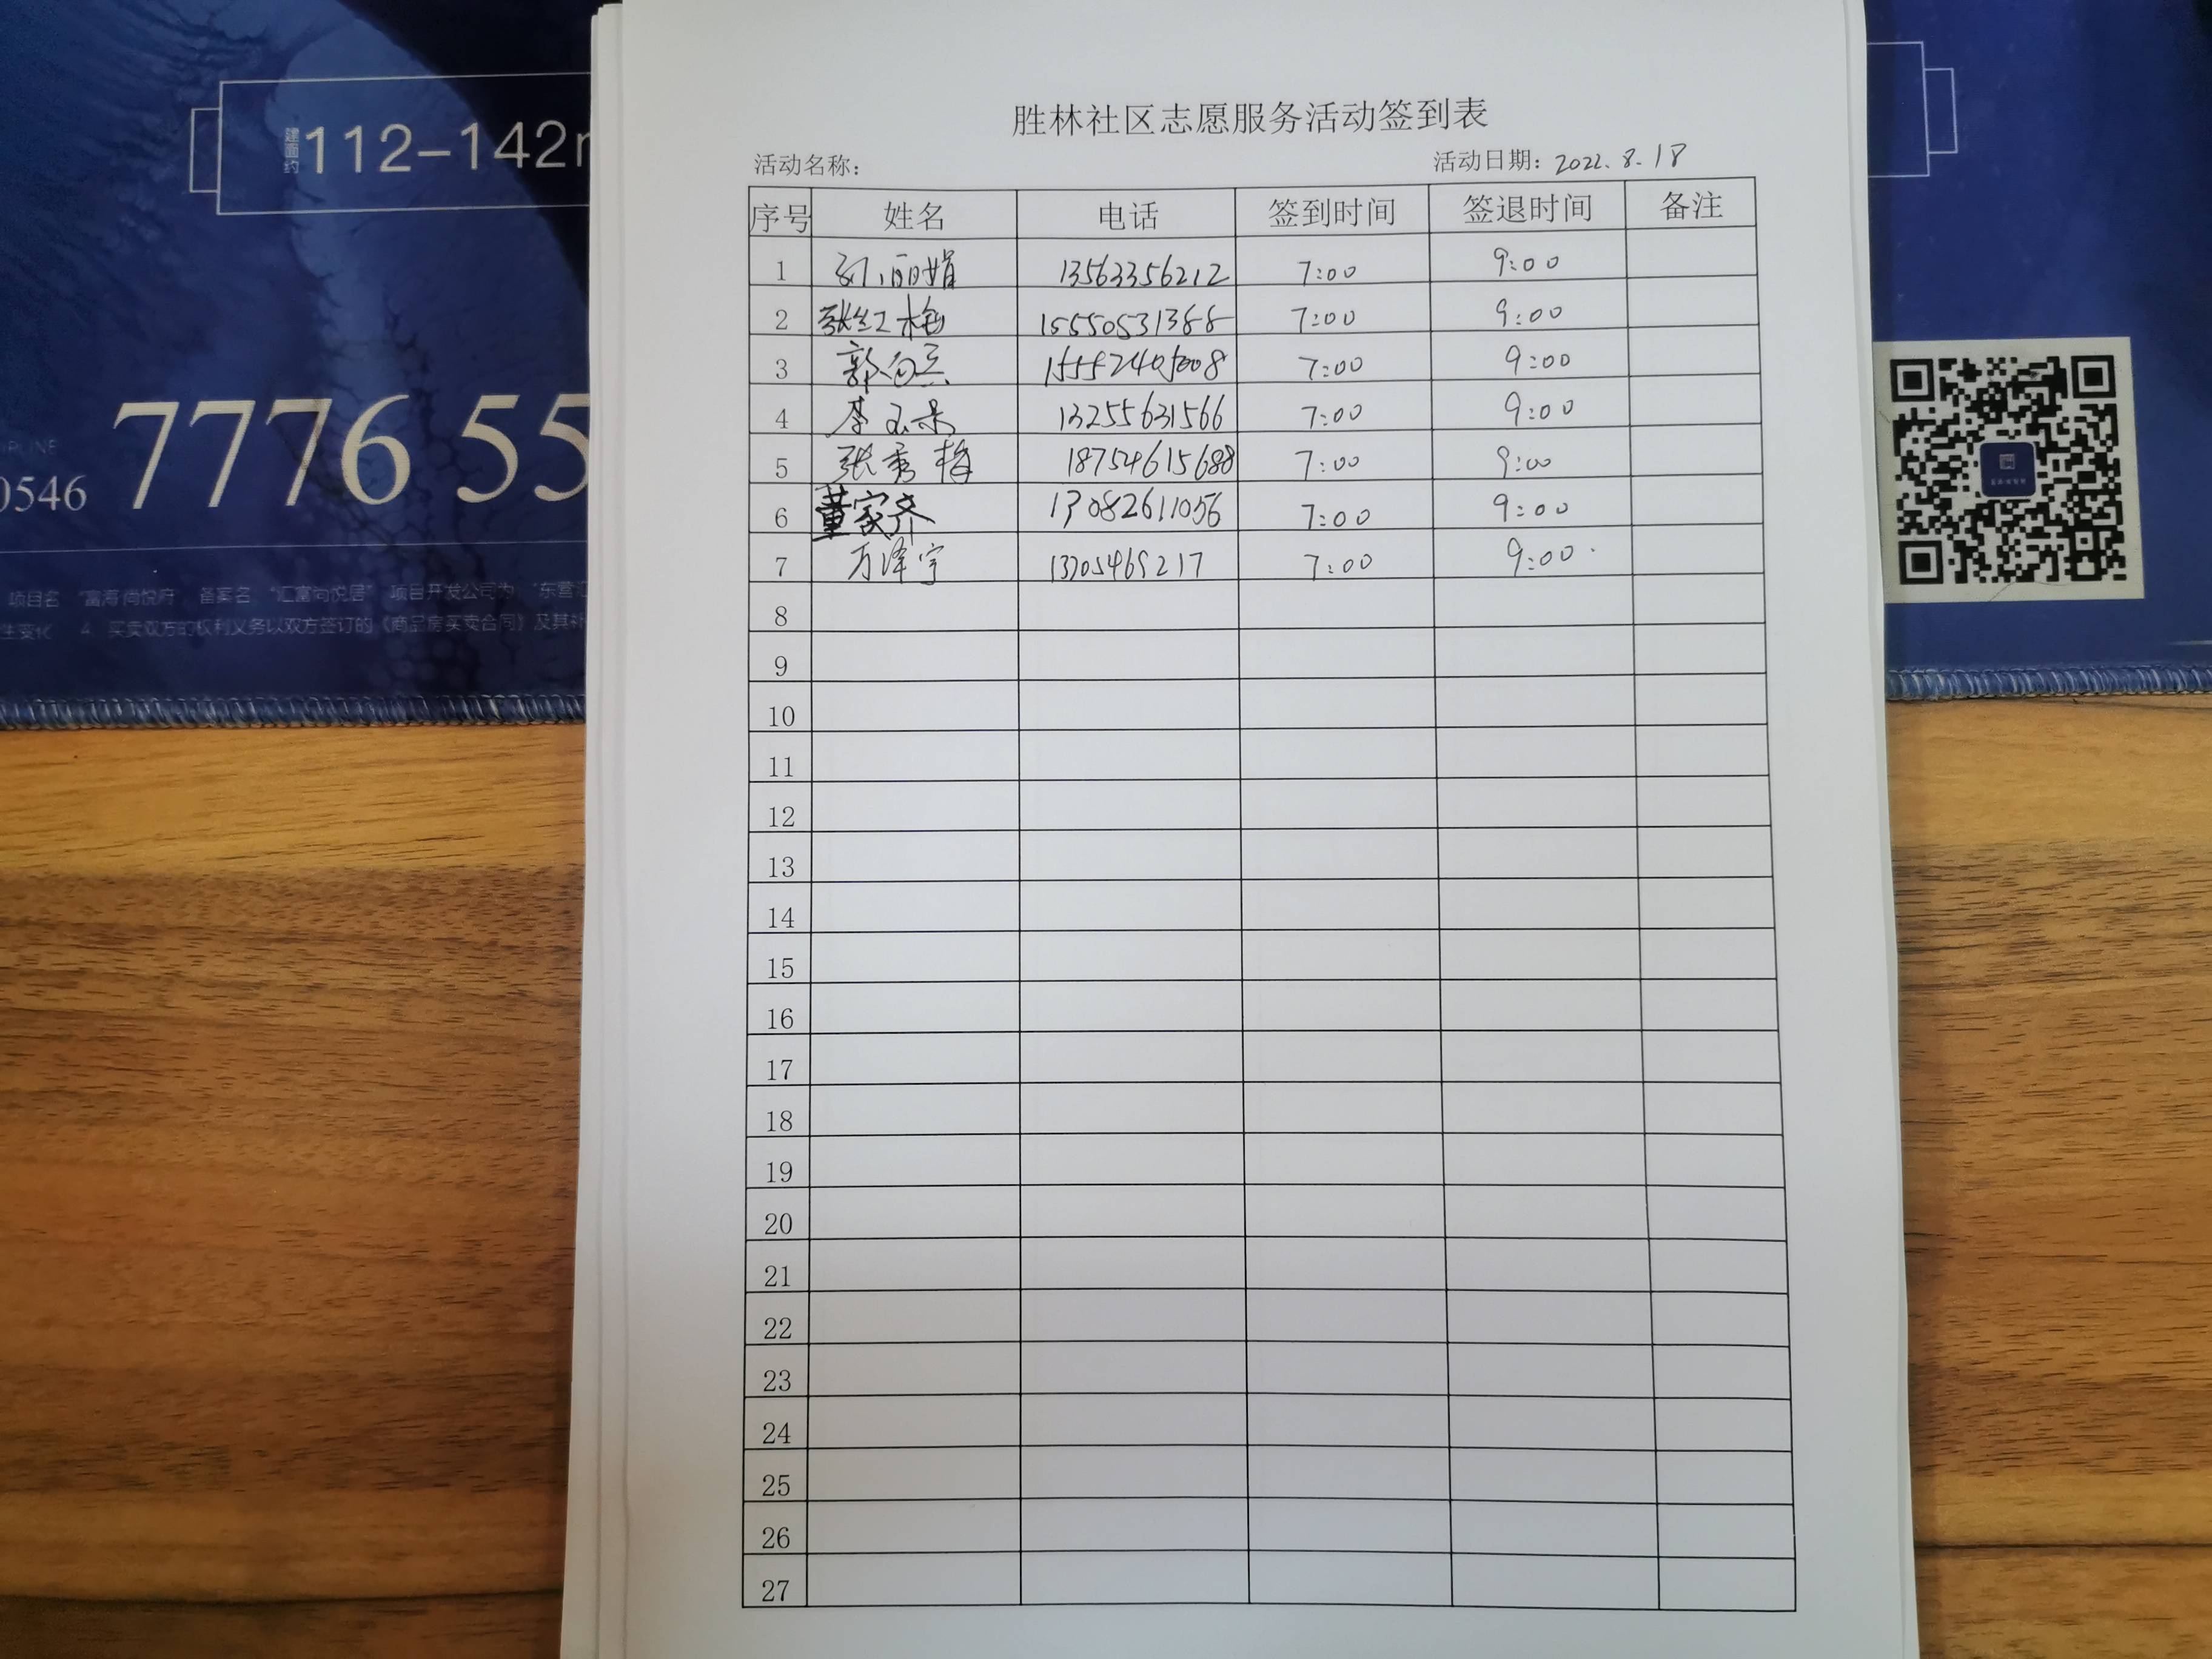 建面约112-142m
0546 7776 55
项目名 "富海尚悦府" 备案名 "汇富尚悦居" 项目开发公司为 "东营汇
生变化 4. 买卖双方的权利义务以双方签订的《商品房买卖合同》及其补
胜林社区志愿服务活动签到表
活动名称: 活动日期: 2022.8.18
序号 姓名 电话 签到时间 签退时间 备注
1 丽娟 13563356212 7:00 9:00
2 张红梅 15550531388 7:00 9:00
3 郭 7:00 9:00
4 李 13255631566 7:00 9:00
5 张秀梅 18754615688 7:00 9:00
6 董家齐 13082611056 7:00 9:00
7 万泽宇 7:00 9:00
8
9
10
11
12
13
14
15
16
17
18
19
20
21
22
23
24
25
26
27